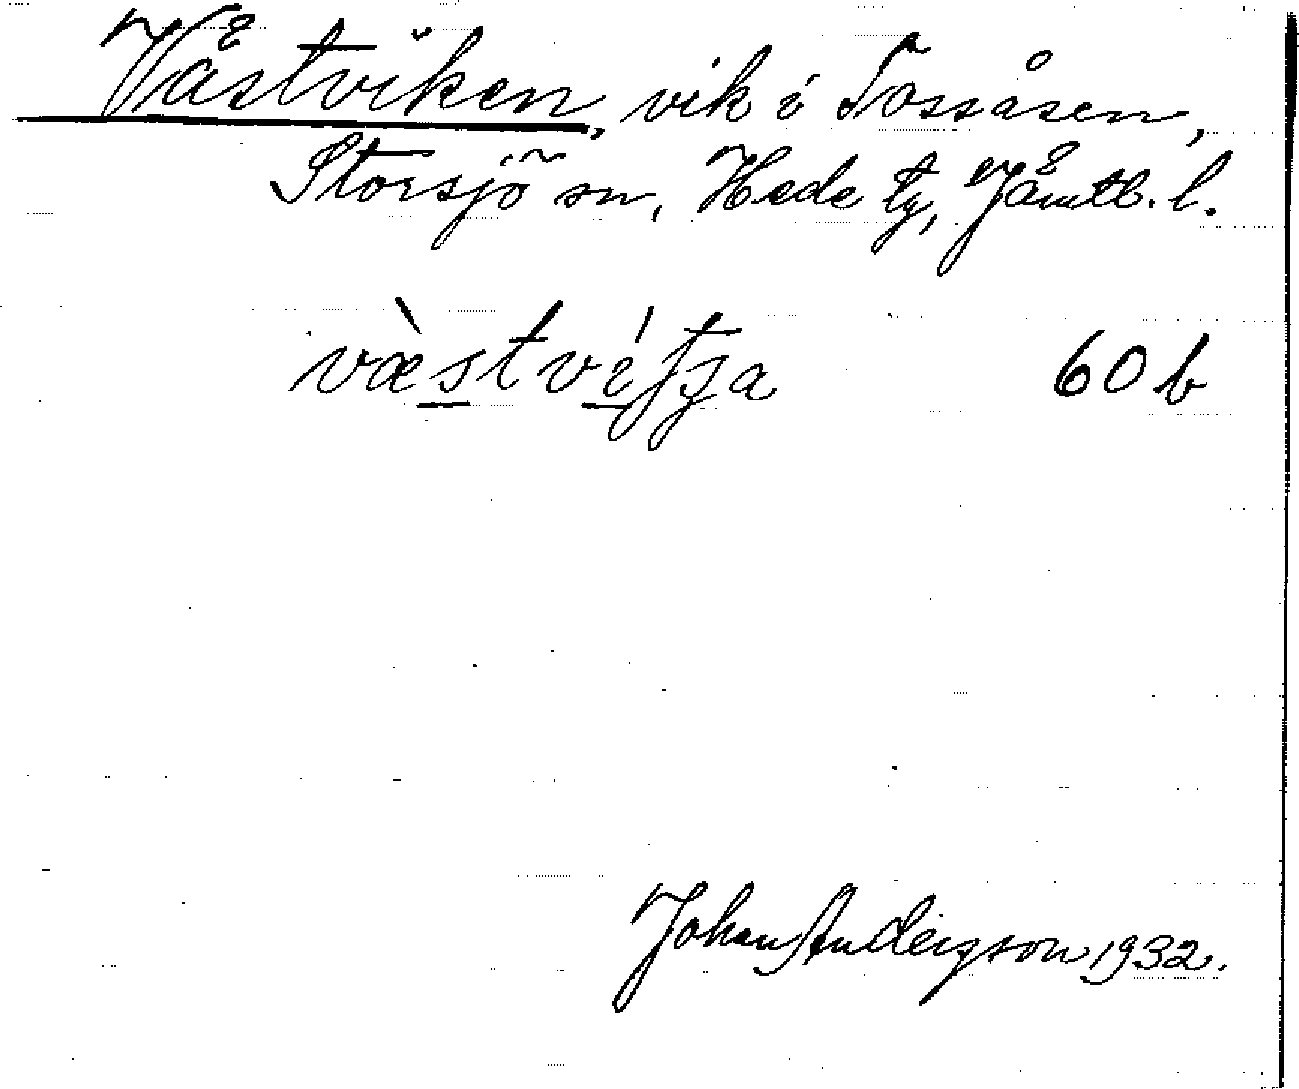 Västviken, vik i Tossåsen,
Storsjö sn, Hede tg, Jämtl. l.
væ̀stvíʃʃa 60 b
Johan Andersson 1932.